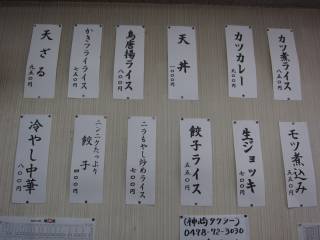 カツ煮ライス
八五〇円
カツカレー
九〇〇円
天丼
一〇〇〇円
鳥唐揚ライス
八〇〇円
かきフライライス
七五〇円
天ざる
九五〇円
モツ煮込み
五五〇円
生ジョッキ
五〇〇円
餃子ライス
六五〇円
ニラもやし炒めライス
七〇〇円
ニンニクたっぷり
餃子
四〇〇円
冷やし中華
八〇〇円
(神崎タクシー)
0478-72-3030